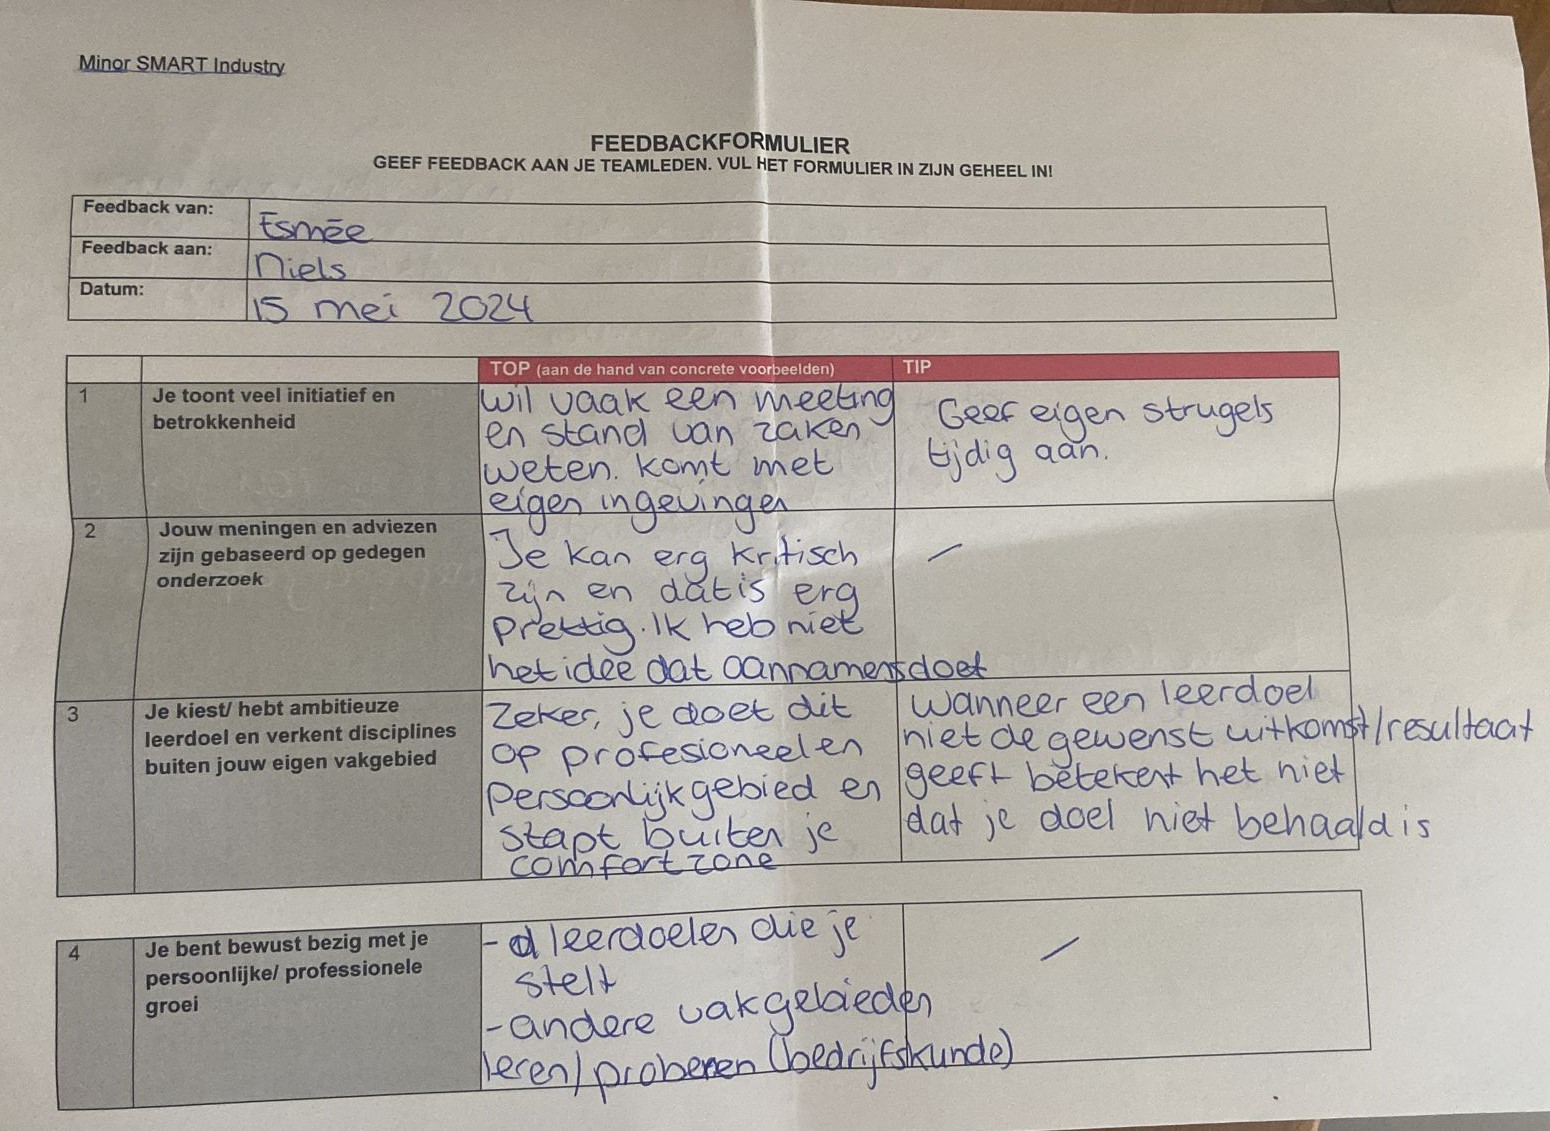 Minor SMART Industry
FEEDBACKFORMULIER
GEEF FEEDBACK AAN JE TEAMLEDEN. VUL HET FORMULIER IN ZIJN GEHEEL IN!
Feedback van: Esmée
Feedback aan: Niels
Datum: 15 mei 2024
TOP (aan de hand van concrete voorbeelden)
TIP
1
Je toont veel initiatief en
betrokkenheid
Wil vaak een meeting
en stand van zaken
weten. komt met
eigen ingevingen
Geef eigen strugels
tijdig aan.
2
Jouw meningen en adviezen
zijn gebaseerd op gedegen
onderzoek
Je kan erg kritisch
zijn en dat is erg
prettig. Ik heb niet
het idee dat aannamens doet
/
3
Je kiest/ hebt ambitieuze
leerdoel en verkent disciplines
buiten jouw eigen vakgebied
Zeker, je doet dit
op profesioneel en
persoonlijk gebied en
stapt buiten je
comfortzone
Wanneer een leerdoel
niet de gewenst uitkomst/resultaat
geeft betekent het niet
dat je doel niet behaald is
4
Je bent bewust bezig met je
persoonlijke/ professionele
groei
- leerdoelen die je
stelt
- andere vakgebieden
leren/proberen (bedrijfskunde)
/